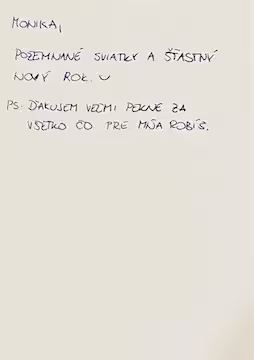 MONIKA,
POŽEMNANÉ SVIATKY A ŠŤASTNÝ
NOVÝ ROK.
PS: ĎAKUJEM VEĽMI PEKNE ZA
VŠETKO ČO PRE MŇA ROBÍŠ.